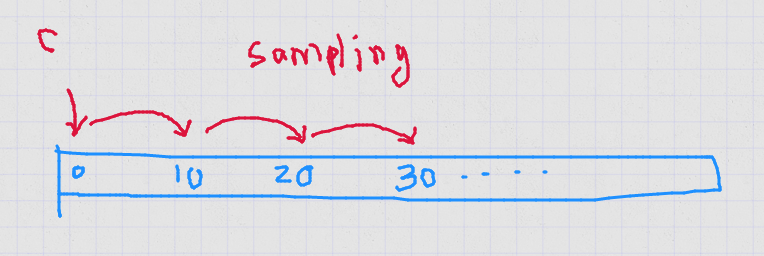 C
sampling
0 10 20 30 .....